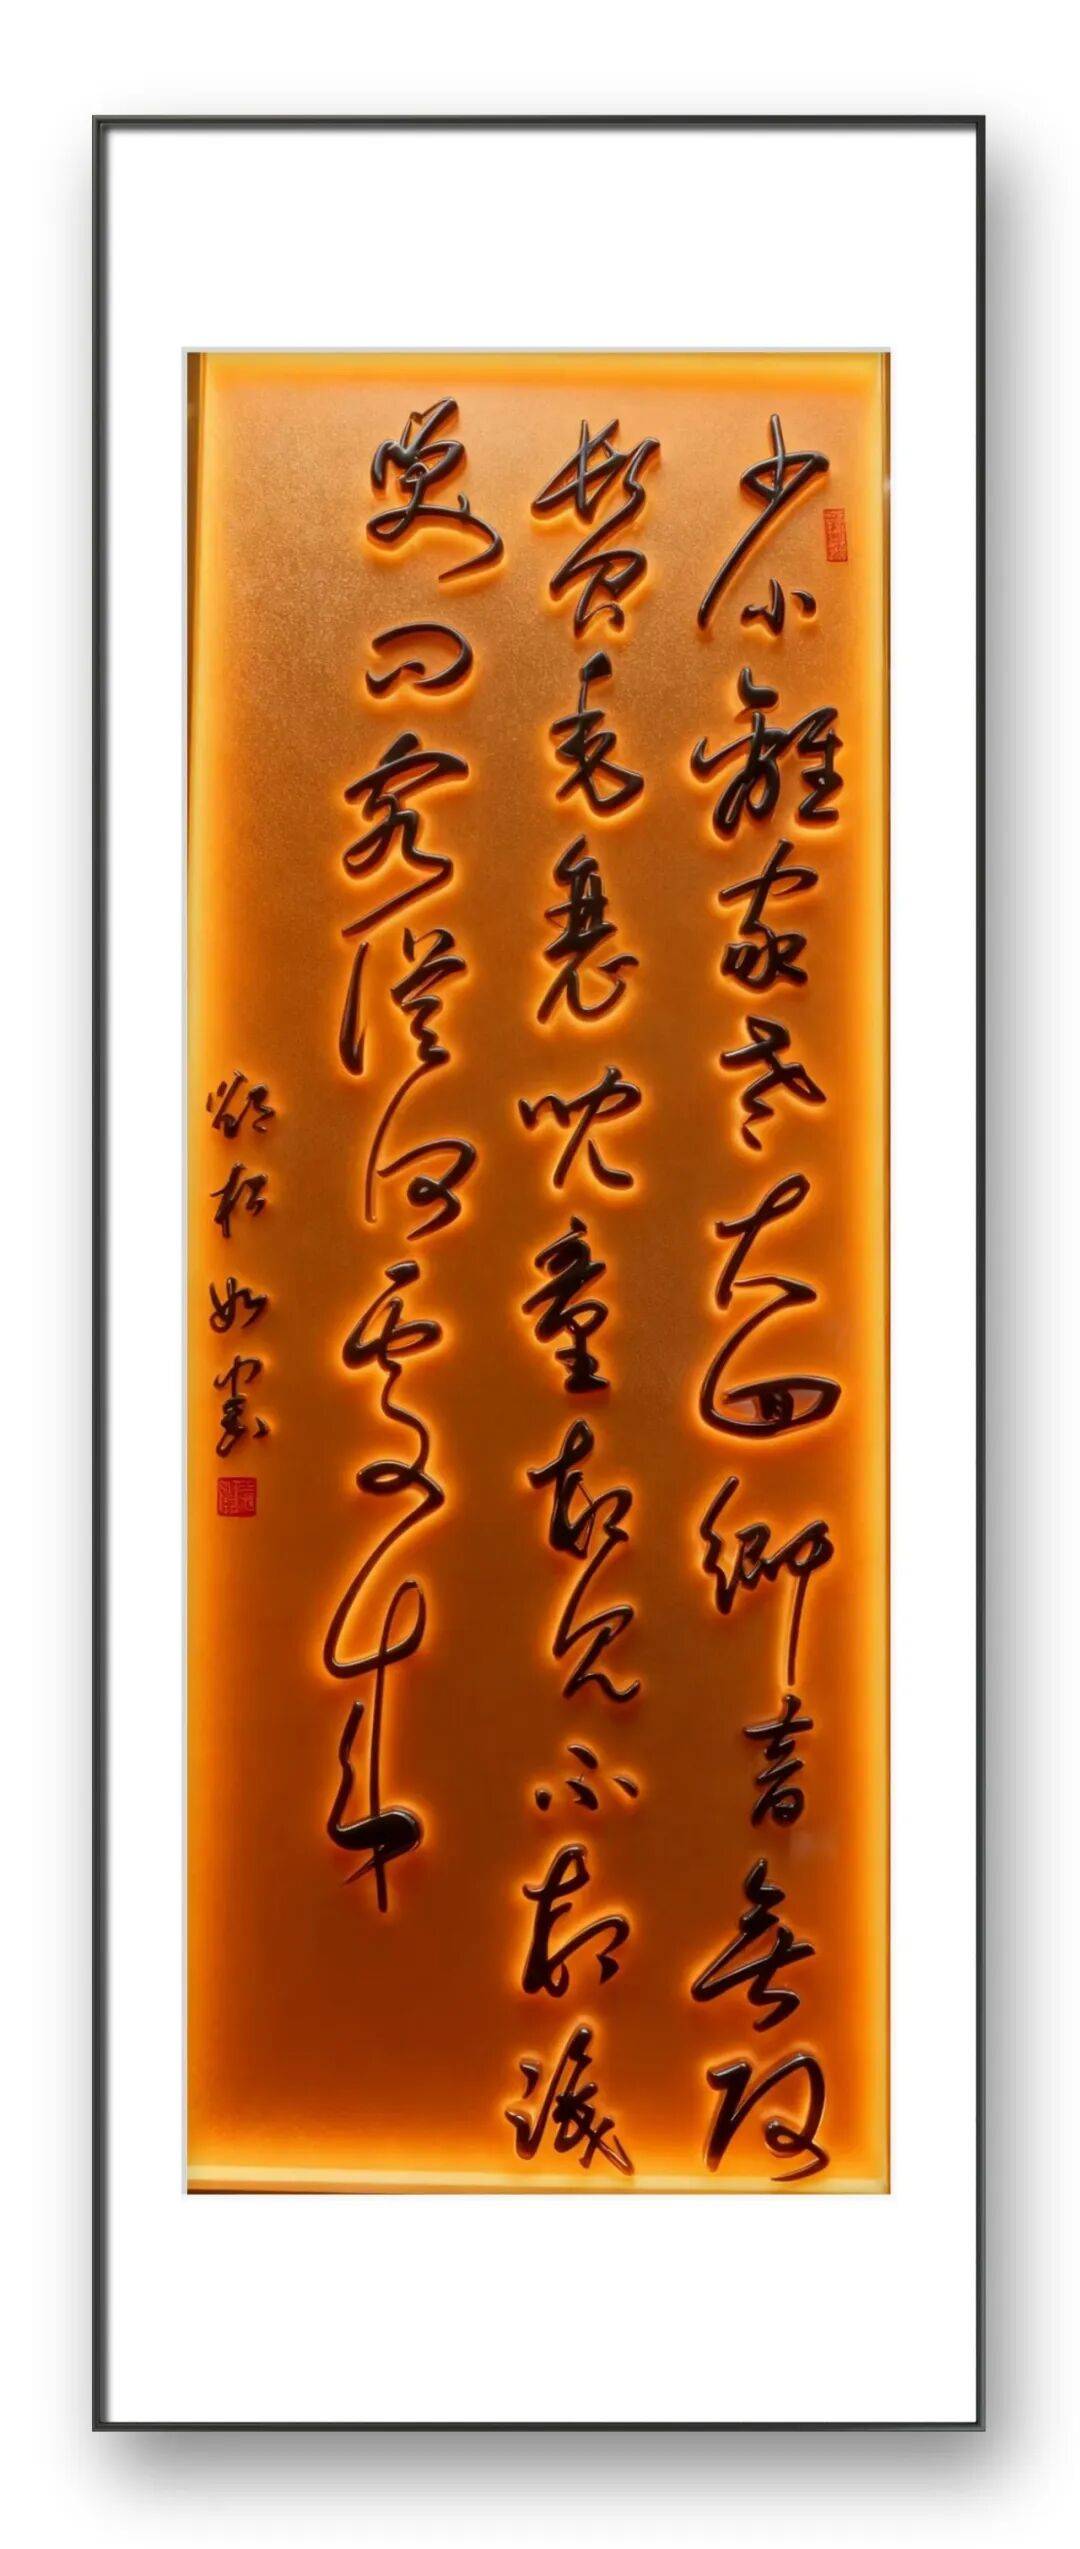 少小離家老大回鄉音無改
鬢毛衰兒童相見不相識
笑問客從何處來
松如書